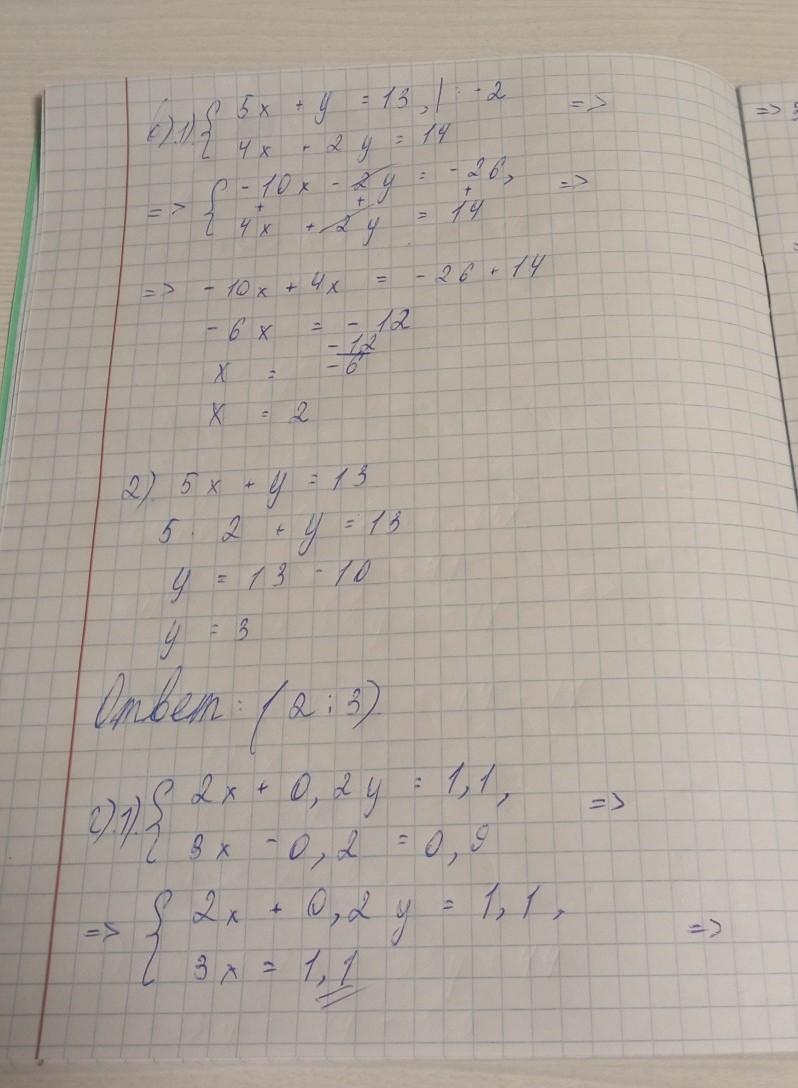 б).1). { 5x + y = 13, | · -2 =>
4x + 2y = 14
=> { -10x - 2y = -26, =>
+ + +
4x + 2y = 14
=> -10x + 4x = -26 + 14
-6x = -12
x = -12/-6
x = 2
2) 5x + y = 13
5 · 2 + y = 13
y = 13 - 10
y = 3
Ответ: (2;3)
г).1). { 2x + 0,2y = 1,1, =>
3x - 0,2 = 0,9
=> { 2x + 0,2y = 1,1, =>
3x = 1,1
=>